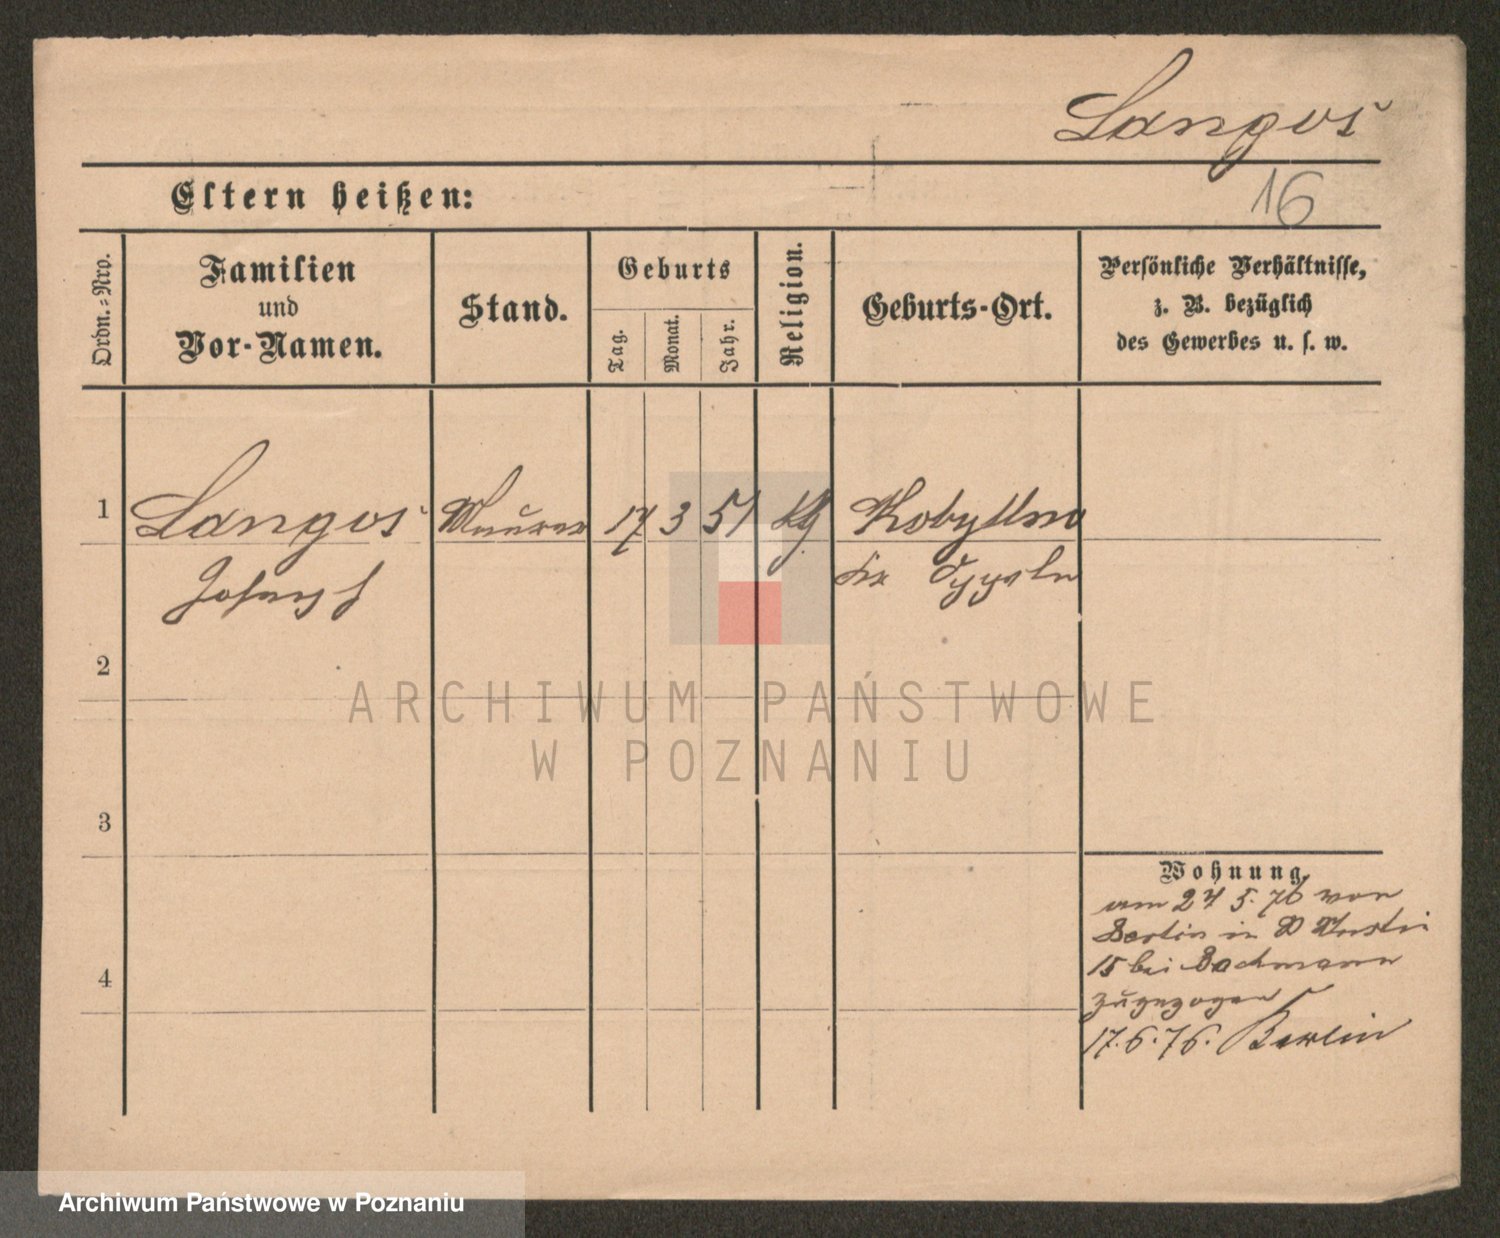 Langos
16
Eltern heißen:
Ordn.=Nro.
Familien
und
Vor-Namen.
Stand.
Geburts
Tag.
Monat.
Jahr.
Religion.
Geburts-Ort.
Persönliche Verhältnisse,
z. B. bezüglich
des Gewerbes u. s. w.
1
Langos
Joseph
Maurer
17
3
51
Kobyllno
Oppeln
2
ARCHIWUM PAŃSTWOWE
W POZNANIU
3
Wohnung.
am 27 5. 76 von
Berlin in
15 bei Bachmann
zugezogen
17.6.76. Berlin
4
Archiwum Państwowe w Poznaniu